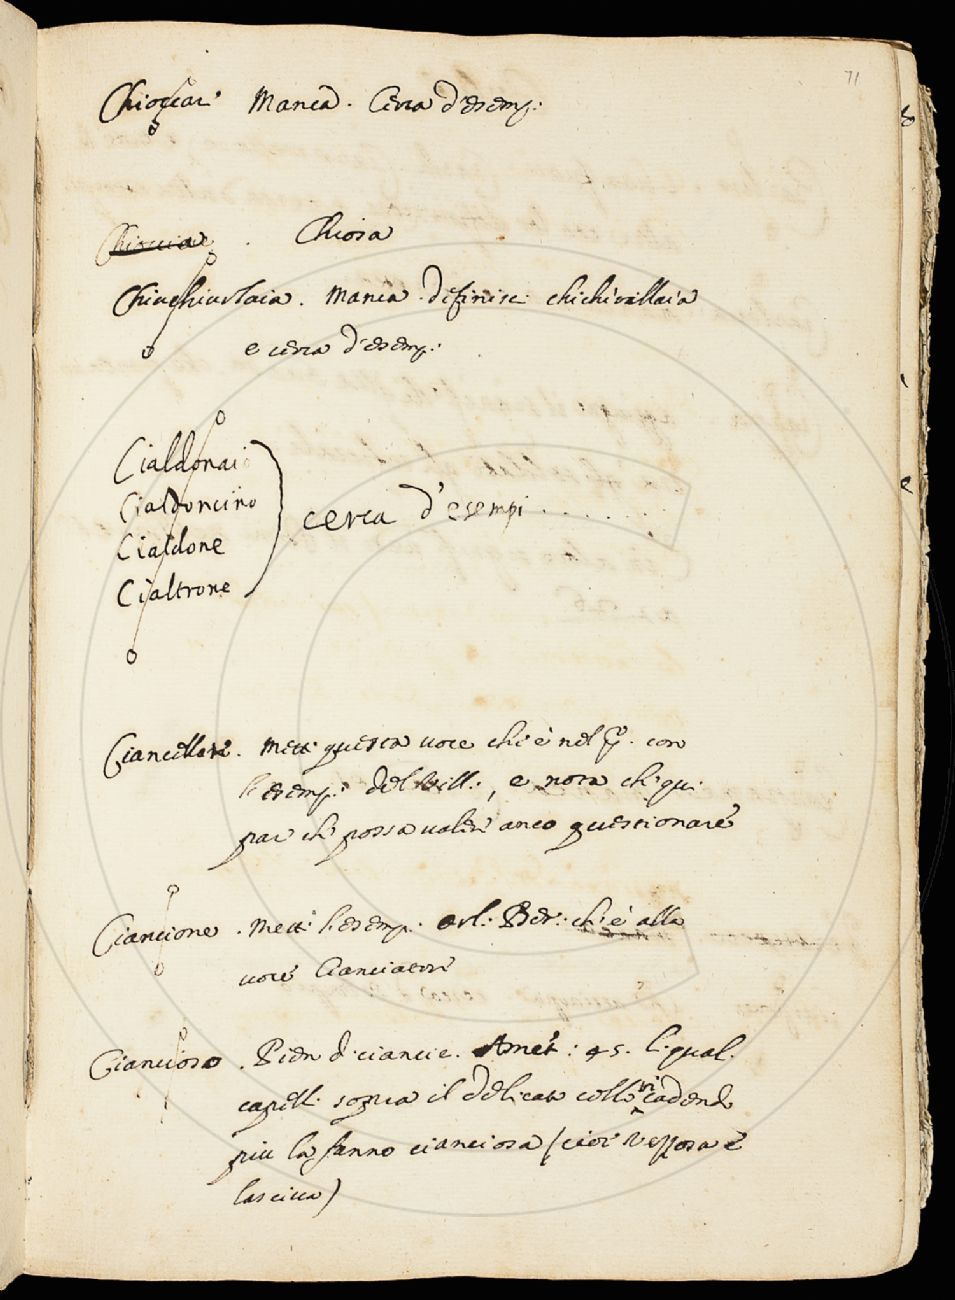 71
Chioccar Manca. Cerca d'esemp.
Chioccia . Chiosa
Chiuchiurlaia. Manca. difinisc. chichirillaia
e cerca d'esemp.
Cialdonaio
Cialdoncino
Cialdone cerca d'esempi . . . . . .
Cialtrone
Ciancellare. Mett. questa voce ch'è nel con
l'esemp. del Vill., e nota ch. qui
par ch. possa valer anco questionare
Ciancione . Mett. l'esemp. Orl. Ber. ch. è alla
voce Cianciatore
Ciancioso . Pien di ciancie. Amet: 45. l. qual.
capell. sopra il delicato collo ricadendo
più la fanno cianciosa (cioè vezzosa e
lasciva)